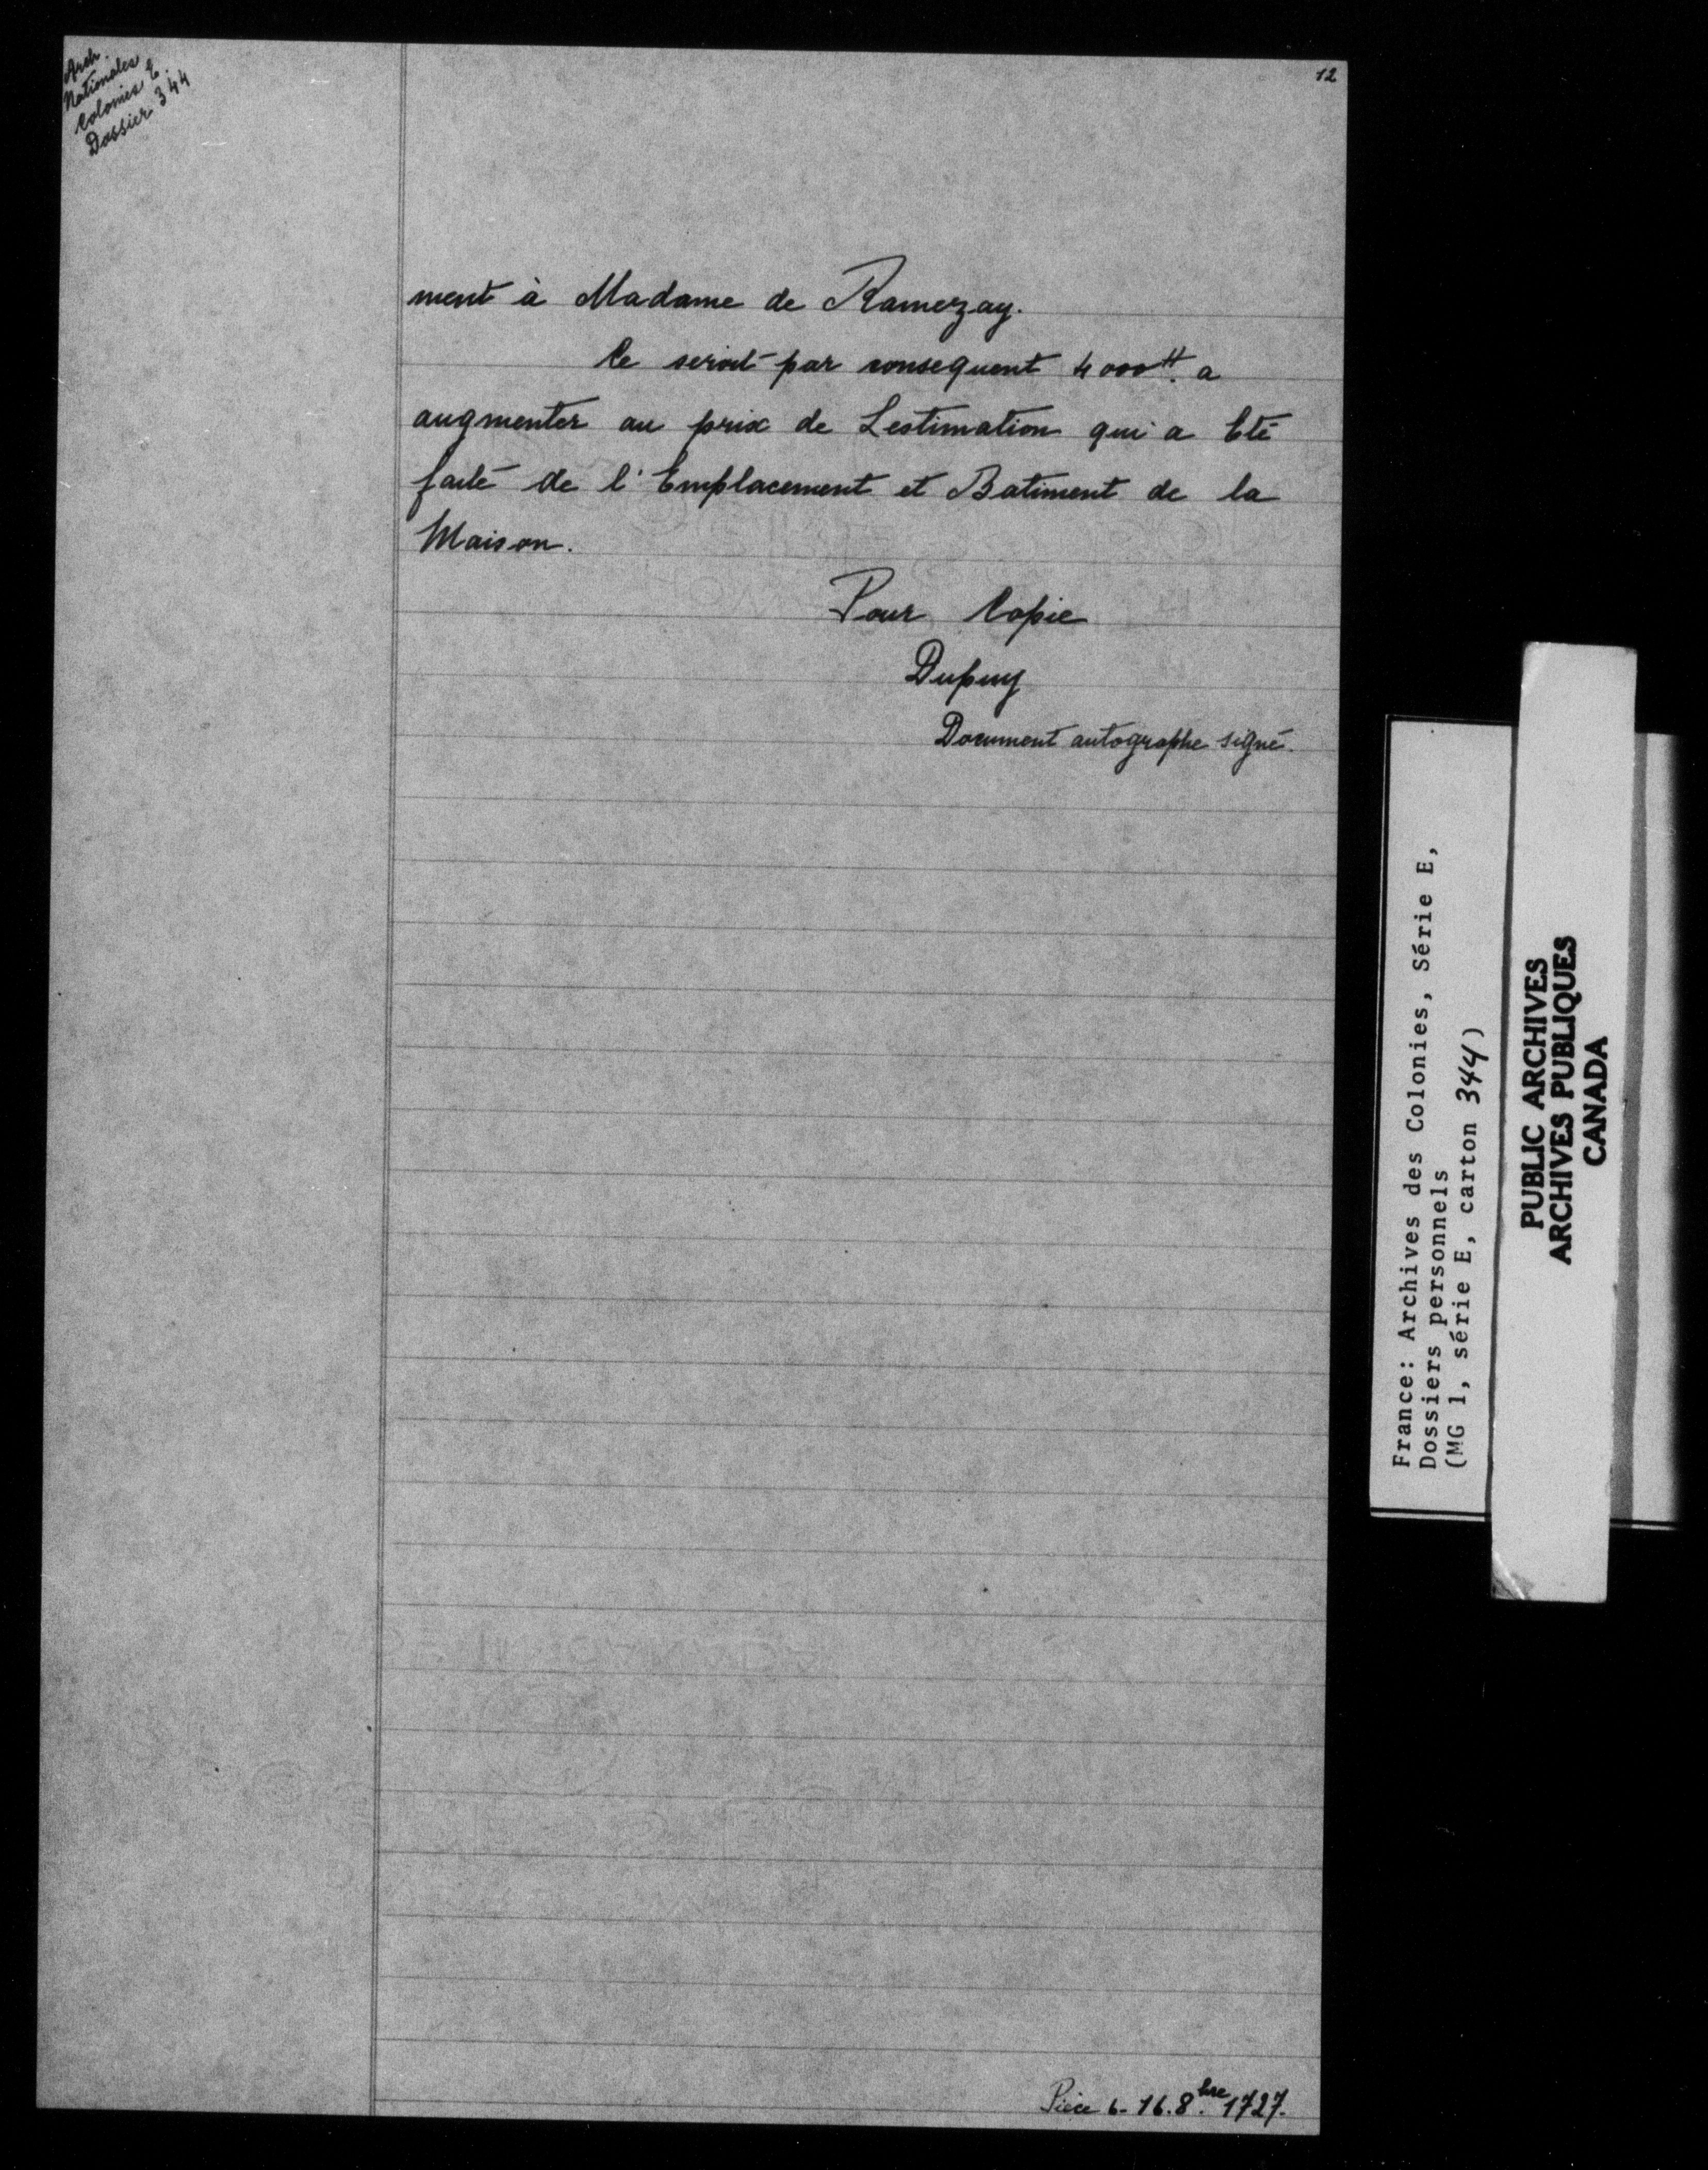 Arch.
Nationales
Colonies E.
Dossier 344
12
ment à Madame de Ramezay.
Ce seroit par consequent 4000tt. a
augmenter au prix de Lestimation qui a Eté
faite de l'Emplacement et Batiment de la
Maison.
Pour Copie
Dupuy
Document autographe signé.
Pièce 6- 16. 8.bre 1727.
France: Archives des Colonies, Série E,
Dossiers personnels
(MG 1, série E, carton 344)
PUBLIC ARCHIVES
ARCHIVES PUBLIQUES
CANADA